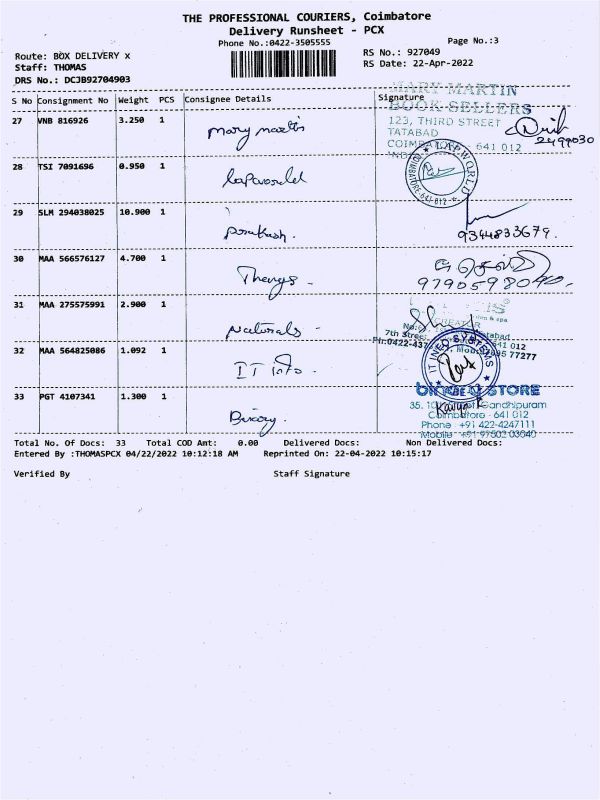 THE PROFESSIONAL COURIERS, Coimbatore
Delivery Runsheet - PCX
Phone No.:0422-3505555
Page No.:3
Route: BOX DELIVERY x
RS No.: 927049
Staff: THOMAS
RS Date: 22-Apr-2022
DRS No.: DCJB92704903
S No Consignment No Weight PCS Consignee Details Signature
MARY MARTIN
BOOK SELLERS
27 VNB 816926 3.250 1 mary martin
123, THIRD STREET
TATABAD
COIMBATORE - 641 012
2499030
28 TSI 7091696 0.950 1 lapworld
LAPWORLD
COIMBATORE-641 012
29 SLM 294038025 10.900 1 prakash.
9344833679.
30 MAA 566576127 4.700 1
9790598040
31 MAA 275575991 2.900 1 Naturals -
CREATER
7th Street, Tatabad
641 012
Ph:0422-437
77277
32 MAA 564825086 1.092 1 IT Info -
IT INFO SYSTEMS
33 PGT 4107341 1.300 1
STORE
Gandhipuram
Coimbatore - 641 012
Phone : +91 422-4247111
Mobile : +91 97502 03040
Total No. Of Docs: 33 Total COD Amt: 0.00 Delivered Docs: Non Delivered Docs:
Entered By :THOMASPCX 04/22/2022 10:12:18 AM Reprinted On: 22-04-2022 10:15:17
Verified By Staff Signature